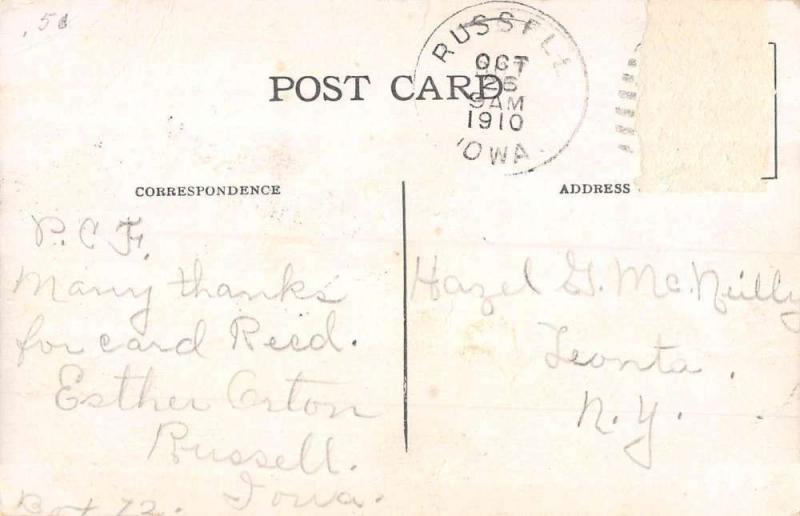 .50
POST CARD
RUSSELL
OCT
26
9AM
1910
IOWA
CORRESPONDENCE
P.C.F.
Many thanks
for card Recd.
Esther Orton
Russell.
Iowa.
72.
ADDRESS
Hazel G. McNeilly
Leonta.
N.Y.